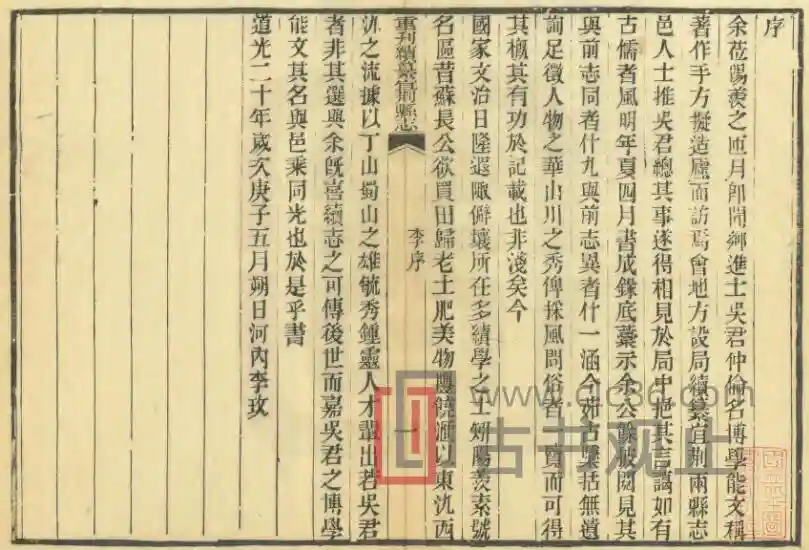 序
余莅陽羨之匝月即聞鄉進士吳君仲倫名博學能文稱
著作手方擬造廬而訪焉會地方設局續纂宜荆兩縣志
邑人士推吳君總其事遂得相見於局中挹其言藹如有
古儒者風明年夏四月書成錄底藁示余公餘披閱見其
與前志同者什九與前志異者什一涵今茹古檃括無遺
詢足徵人物之華山川之秀俾採風問俗者一覽而可得
其概其有功於記載也非淺矣今
國家文治日隆遐陬僻壤所在多績學之士矧陽羨素號
名區昔蘇長公欲買田歸老土肥美物豐饒滙以東氿西
重刊續纂宜荆縣志
李序
一
氿之流據以丁山蜀山之雄毓秀鍾靈人才輩出若吳君
者非其選與余旣喜續志之可傳後世而嘉吳君之博學
能文其名與邑乘同光也於是乎書
道光二十年歲次庚子五月朔日河內李玫
古书观止